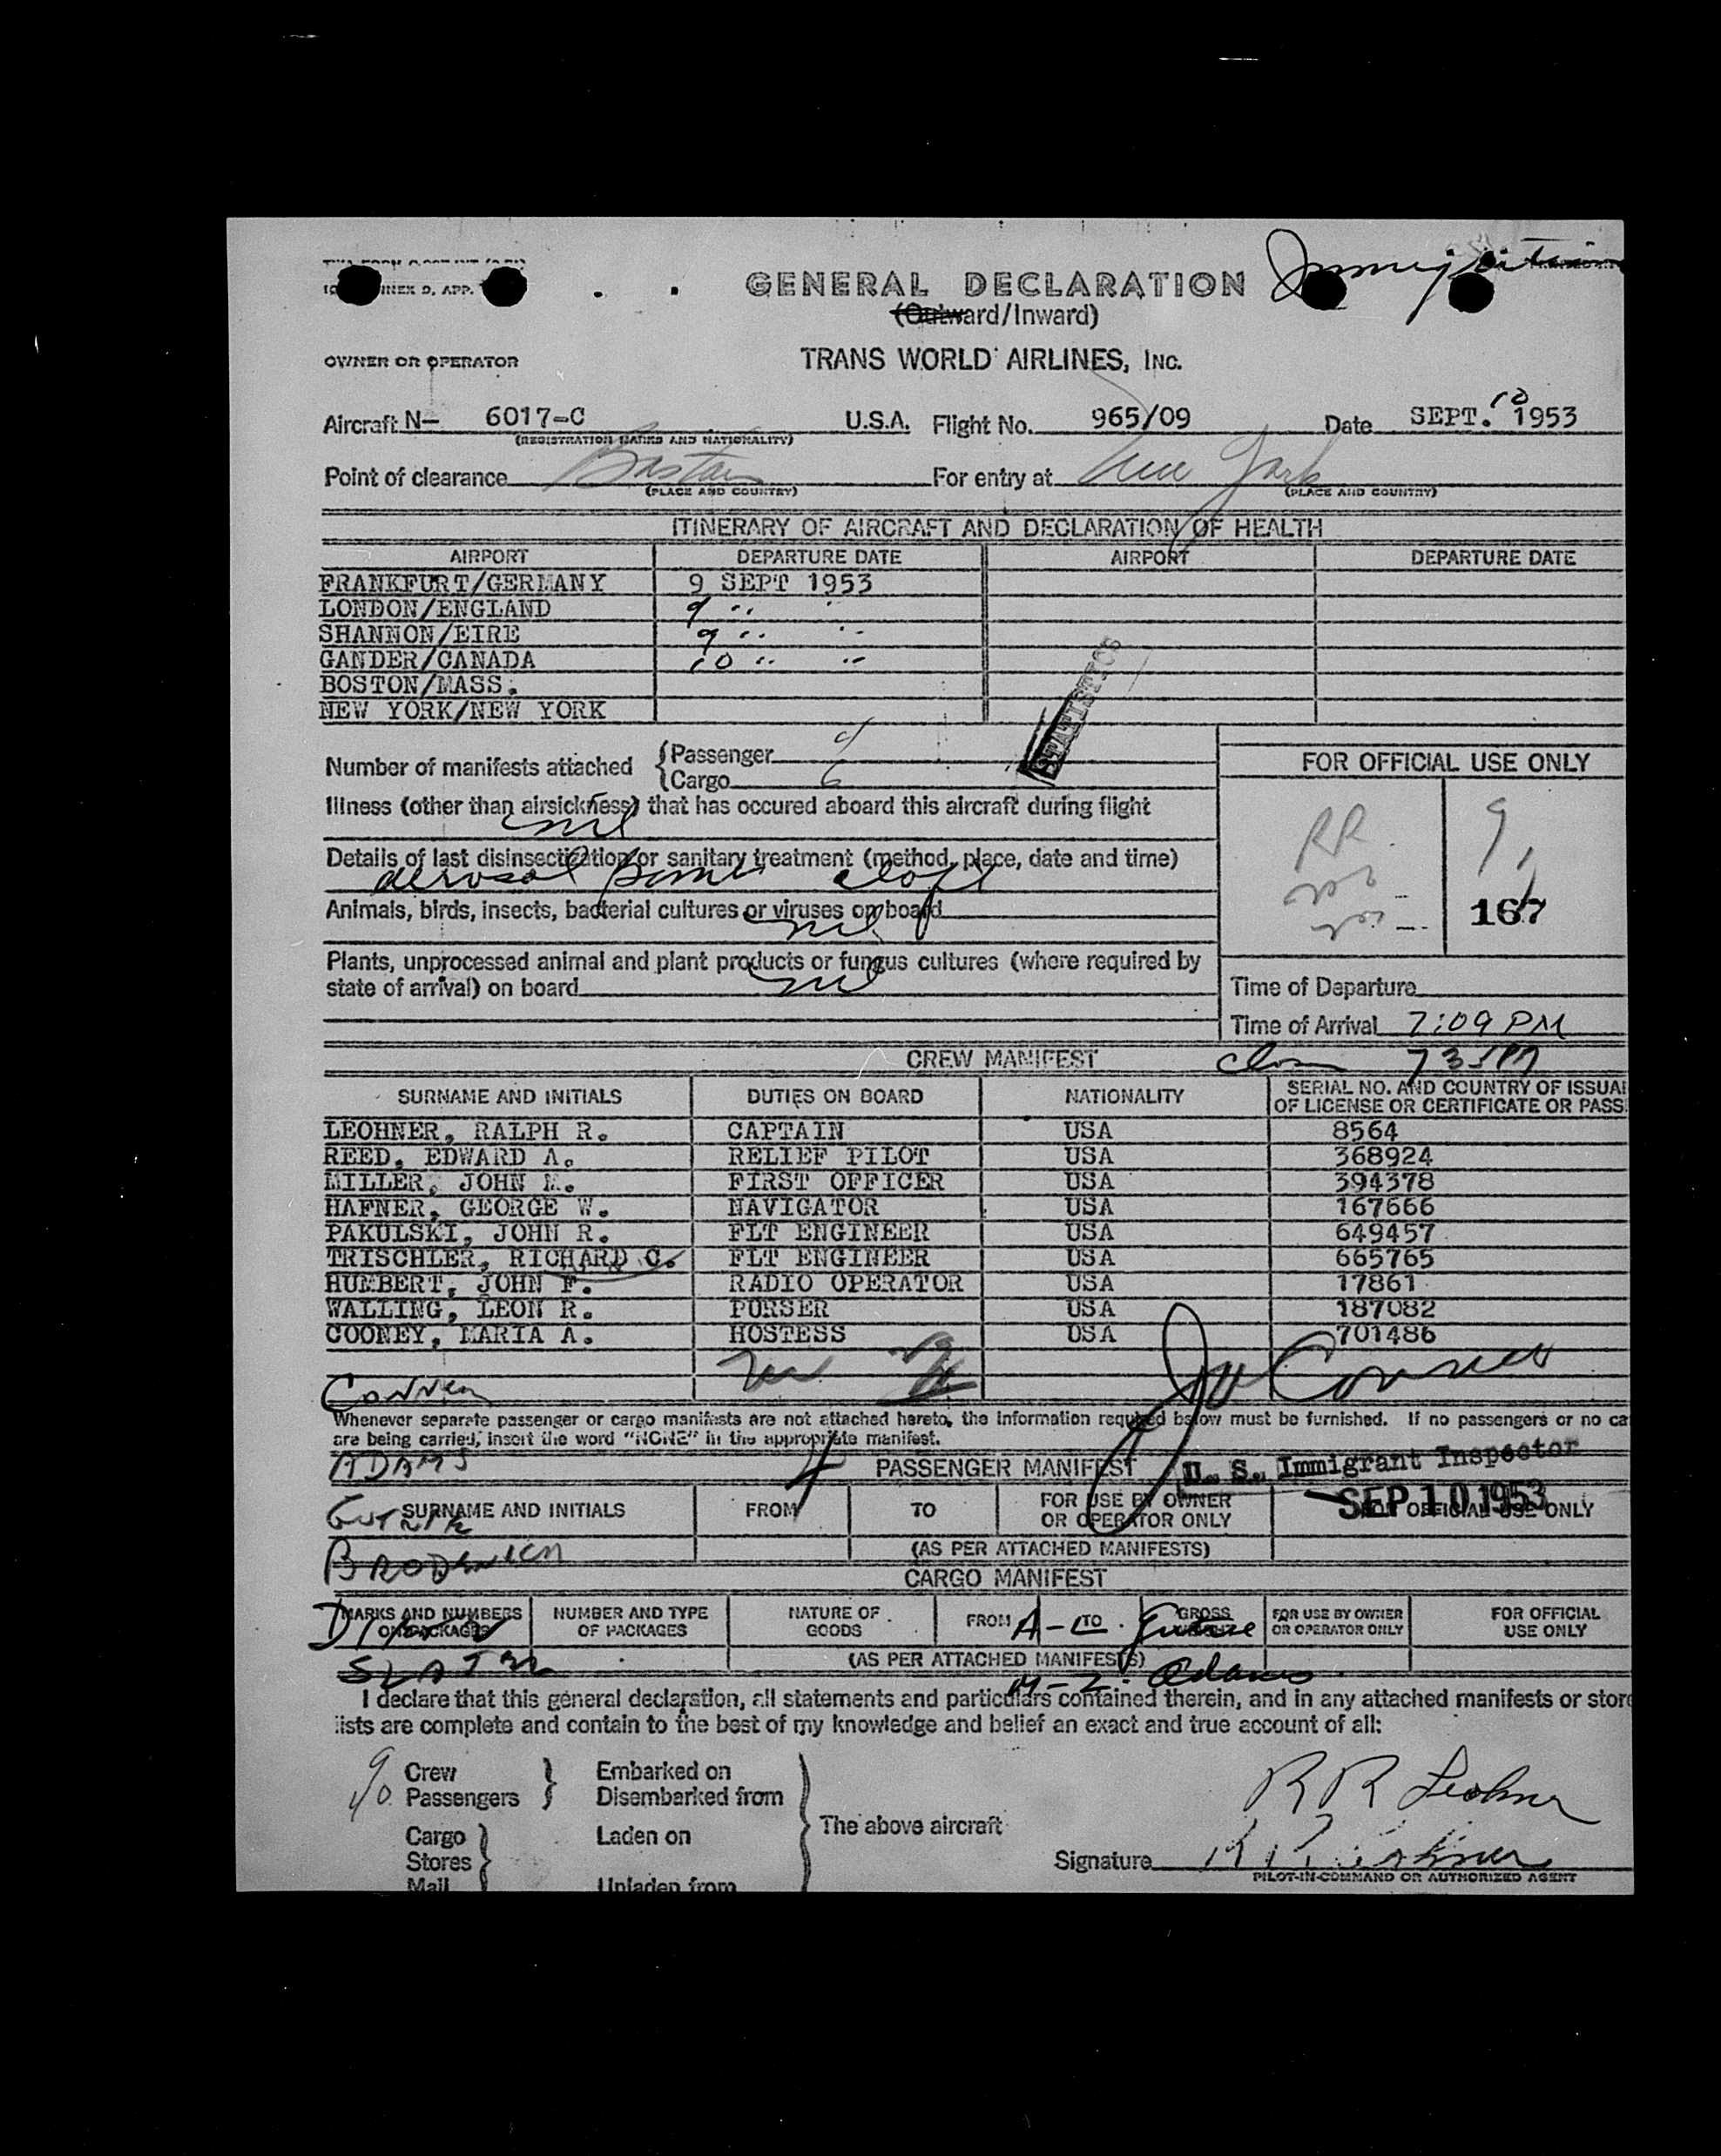 GENERAL DECLARATION
(Outward/Inward)
OWNER OR OPERATOR TRANS WORLD AIRLINES, INC.
Aircraft N- 6017-C U.S.A. Flight No. 965/09 Date SEPT. 10 1953
(REGISTRATION MARKS AND NATIONALITY)
Point of clearance Boston For entry at New York
(PLACE AND COUNTRY) (PLACE AND COUNTRY)
ITINERARY OF AIRCRAFT AND DECLARATION OF HEALTH
AIRPORT DEPARTURE DATE AIRPORT DEPARTURE DATE
FRANKFURT/GERMANY 9 SEPT 1953
LONDON/ENGLAND 9 " "
SHANNON/EIRE 9 " "
GANDER/CANADA 10 " "
BOSTON/MASS.
NEW YORK/NEW YORK
STATISTICS
Number of manifests attached
Passenger
Cargo 6
FOR OFFICIAL USE ONLY
Illness (other than airsickness) that has occured aboard this aircraft during flight
nil
RR 9
Details of last disinsectication or sanitary treatment (method, place, date and time)
aerosol bomb
Animals, birds, insects, bacterial cultures or viruses on board nil
167
Plants, unprocessed animal and plant products or fungus cultures (where required by
state of arrival) on board nil
Time of Departure
Time of Arrival 7:09 PM
CREW MANIFEST
SURNAME AND INITIALS DUTIES ON BOARD NATIONALITY SERIAL NO. AND COUNTRY OF ISSUA
OF LICENSE OR CERTIFICATE OR PASS
LEOHNER, RALPH R. CAPTAIN USA 8564
REED, EDWARD A. RELIEF PILOT USA 368924
MILLER, JOHN M. FIRST OFFICER USA 394378
HAFNER, GEORGE W. NAVIGATOR USA 167666
PAKULSKI, JOHN R. FLT ENGINEER USA 649457
TRISCHLER, RICHARD C. FLT ENGINEER USA 665765
HUMBERT, JOHN F. RADIO OPERATOR USA 17861
WALLING, LEON R. PURSER USA 187082
COONEY, MARIA A. HOSTESS USA 701486
Whenever separate passenger or cargo manifests are not attached hereto, the information required below must be furnished. If no passengers or no ca
are being carried, insert the word "NONE" in the appropriate manifest.
ADAMS
PASSENGER MANIFEST
U. S. Immigrant Inspector
SEP 10 1953
SURNAME AND INITIALS FROM TO FOR USE BY OWNER OR OPERATOR ONLY FOR OFFICIAL USE ONLY
(AS PER ATTACHED MANIFESTS)
CARGO MANIFEST
MARKS AND NUMBERS ON PACKAGES NUMBER AND TYPE OF PACKAGES NATURE OF GOODS FROM TO GROSS WEIGHT FOR USE BY OWNER OR OPERATOR ONLY FOR OFFICIAL USE ONLY
A-L
(AS PER ATTACHED MANIFESTS)
M-Z. Adams
I declare that this general declaration, all statements and particulars contained therein, and in any attached manifests or store
lists are complete and contain to the best of my knowledge and belief an exact and true account of all:
9 Crew Embarked on
Passengers Disembarked from
The above aircraft
Cargo Laden on
Stores
Mail Unladen from
R R Leohner
Signature R R Leohner
PILOT-IN-COMMAND OR AUTHORIZED AGENT